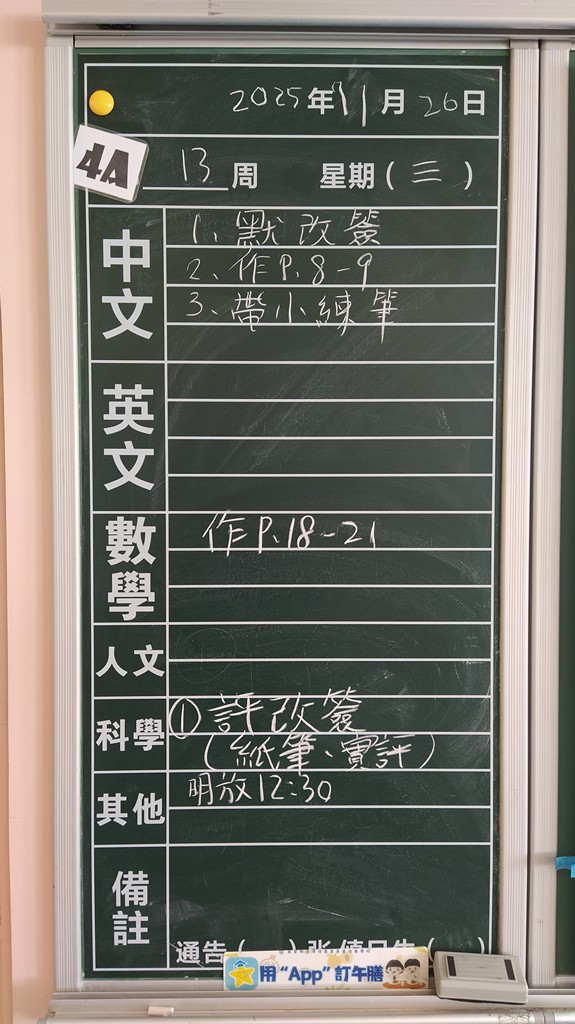 2025年11月26日
4A
13周 星期(三)
中文
1、默改簽
2、作P.8-9
3、帶小練筆
英文
數學
作P.18-21
人文
科學
①評改簽
(紙筆、實評)
其他
明放12:30
備註
通告( )
用“App”訂午膳